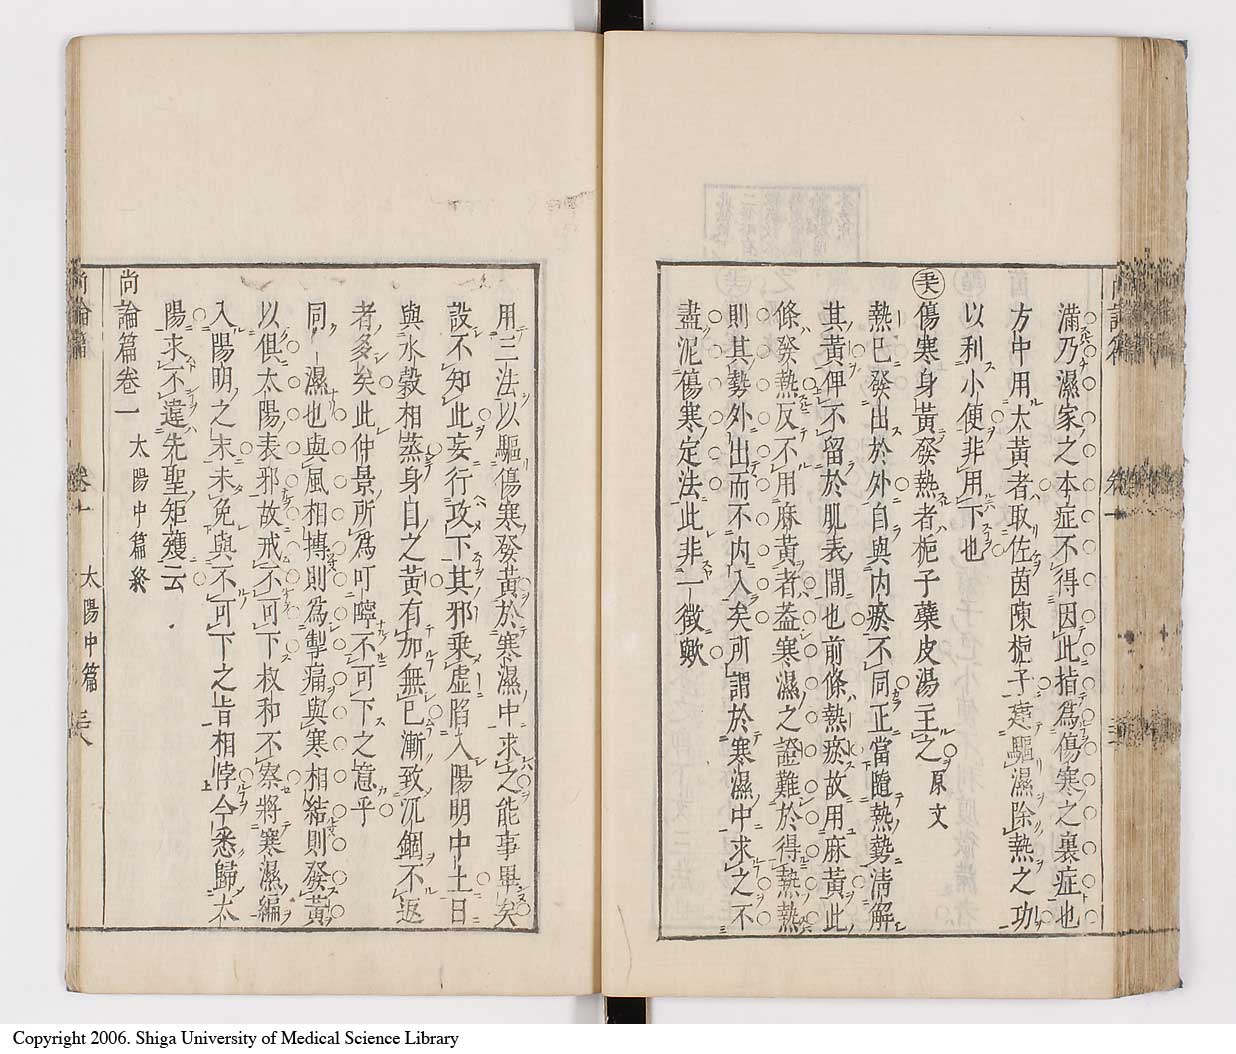 滿乃濕家之本症不得因此指爲傷寒之裏症也
方中用大黃者取佐茵蔯梔子建驅濕除熱之功
以利小便非用下也
傷寒身黃發熱者梔子蘗皮湯主之 原文
熱已發出於外自與内瘀不同正當隨熱勢淸解
其黃俾不留於肌表間也前條熱瘀故用麻黃此
條發熱反不用麻黃者葢寒濕之證難於得熱熱
則其勢外出而不内入矣所謂於寒濕中求之不
盡泥傷寒定法此非一徵歟
用三法以驅傷寒發黃於寒濕中求之能事畢矣
設不知此妄行攻下其邪乘虛陷入陽明中土日
與水穀相蒸身目之黃有加無已漸致沉錮不返
者多矣此仲景所爲叮嚀不可下之意乎
同一濕也與風相摶則爲掣痛與寒相結則發黃
以俱太陽表邪故戒不可下叔和不察將寒濕編
入陽明之末未免與不可下之旨相悖今悉歸太
陽求不違先聖矩矱云
尚論篇卷一 太陽中篇終
尚論篇 卷一 太陽中篇
Copyright 2006. Shiga University of Medical Science Library